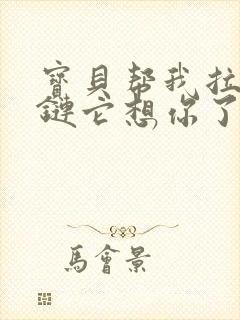 寶貝幫我拉
鏈它想你了
馬會景